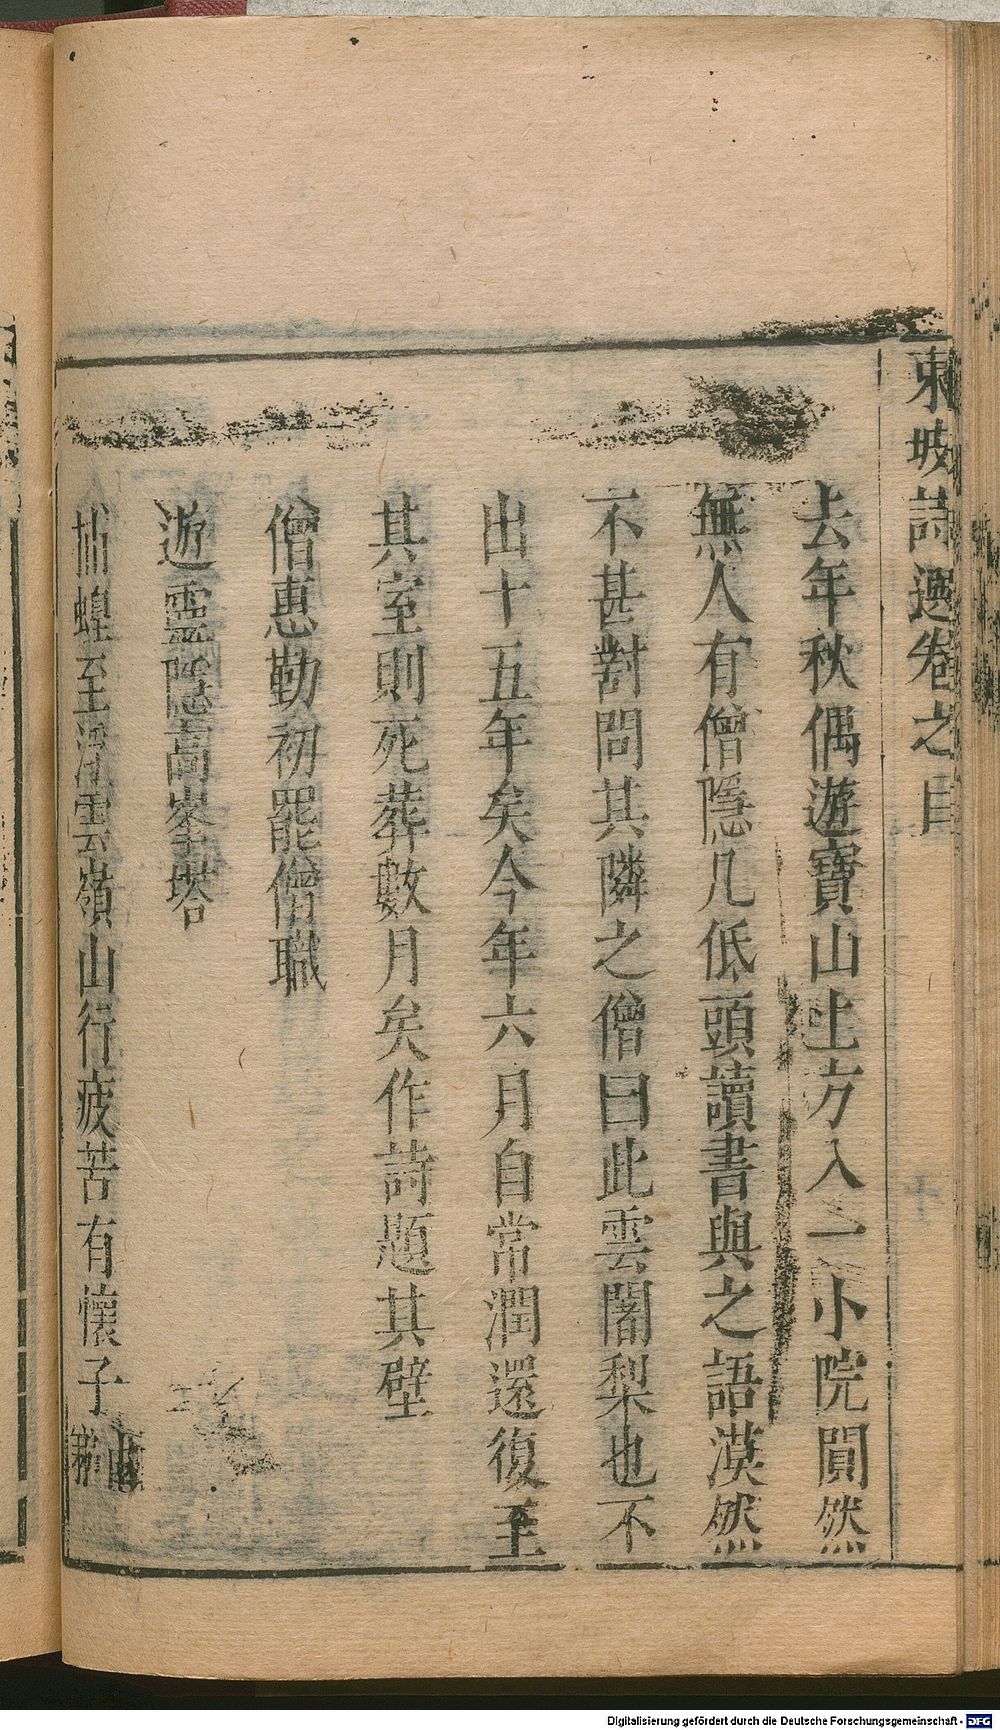 東坡詩選卷之目
去年秋偶遊寶山上方入一小院閴然
無人有僧隱几低頭讀書與之語漠然
不甚對問其隣之僧曰此雲闍梨也不
出十五年矣今年六月自常潤還復至
其室則死葬數月矣作詩題其壁
僧惠勤初罷僧職
遊靈隱高峯塔
捕蝗至浮雲嶺山行疲苶有懷子由弟
Digitalisierung gefördert durch die Deutsche Forschungsgemeinschaft - DFG